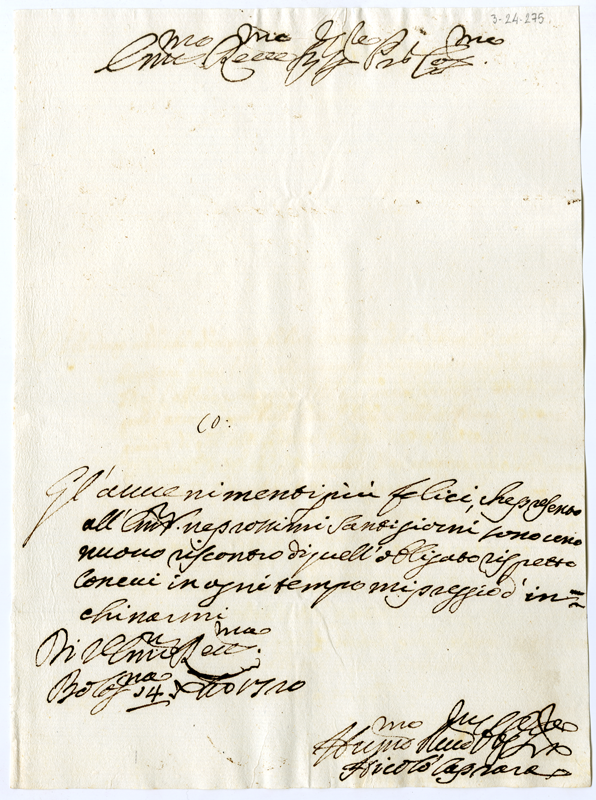 3-24-275.
Em.mo Rev.mo Sig.re P.ron Col.mo
co.
Gl'avvenimenti più felici, che presento
all'Em. V. ne prossimi Santi giorni sono certo
nuovo riscontro di quell'obligato rispetto
con cui in ogni tempo mi preggio d'in=
chinarmi
Di V. Em. Rev.ma
Bolog.na 14 Xbre 1720
Hum.mo
Nicolò Caprara